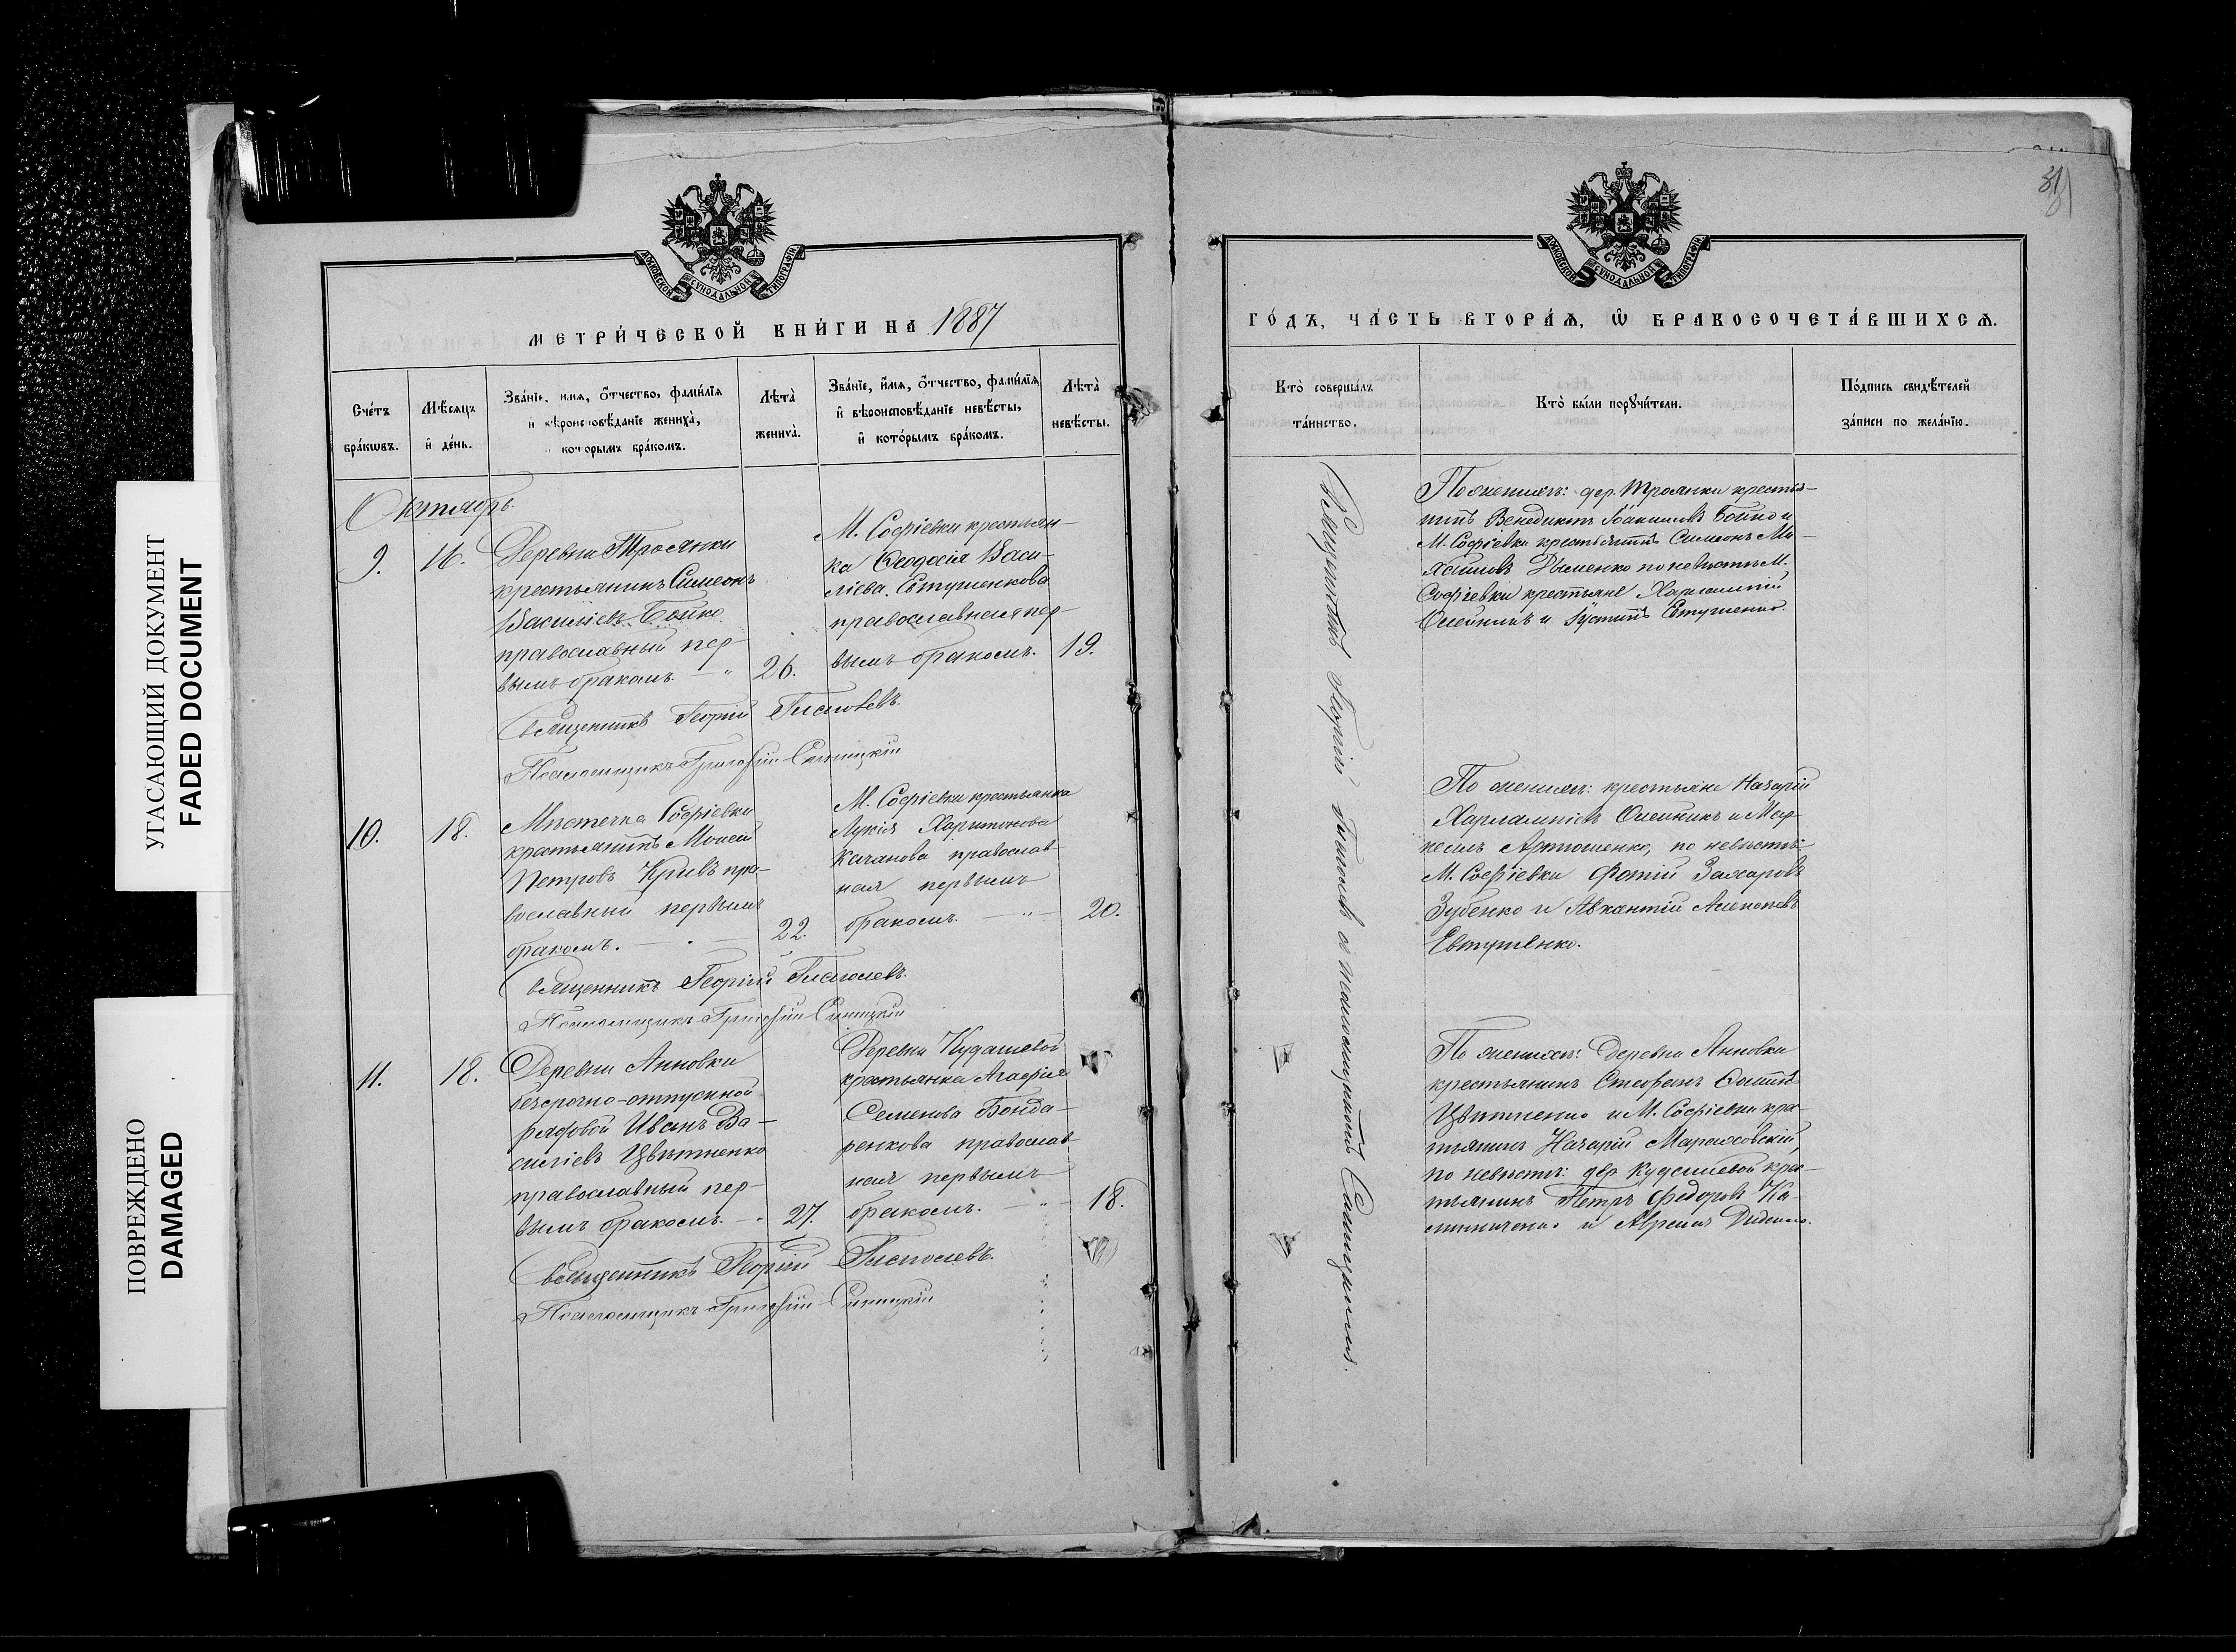 УГАСАЮЩИЙ ДОКУМЕНТ
FADED DOCUMENT
ПОВРЕЖДЕНО
DAMAGED
МОСКОВСКОЙ СѴНОДАЛЬНОЙ ТИПОГРАФІИ
МЕТРИ́ЧЕСКОЙ КНИ́ГИ НА 1887
Сче́тъ бра́кѡвъ.
Мѣ́сяцъ и де́нь.
Зва́нїе, и́мя, ѻ҆́тчество, фами́лїя и вѣроисповѣ́данїе жениха̀, кото́рымъ бра́комъ.
Лѣта̀ жениха̀.
Зва́нїе, и́мя, ѻ҆́тчество, фами́лїя, и вѣроисповѣ́данїе невѣ́сты, и кото́рымъ бра́комъ.
Лѣта̀ невѣ́сты.
Октябрь.
9.
16.
Деревни Троянки
крестьянинъ Симеонъ
Василіевъ Бойко
православный пер-
вымъ бракомъ. — "
26.
М. Софіевки крестьян-
ка Ѳеодосія Васи-
ліева Євтушенкова
православная пер-
вымъ бракомъ.
19.
Священникъ Георгій
Помощикъ Григорій Синицкій
10.
18.
Мѣстечка Софіевки
крестьянинъ Моисей
Петровъ Кривъ пра-
вославный первымъ
бракомъ. — . —
22.
М. Софіевки крестьянка
Лукія Харитонова
Качанова православ-
ная первымъ
бракомъ. — " —
20.
Священникъ Георгій
Помощикъ Григорій Синицкій
11.
18.
Деревни Анновки
безсрочно-отпускной
рядовой Иванъ Ва-
силіевъ Цвѣтненко
православный пер-
вымъ бракомъ. — .
27.
Деревни Кудашевой
крестьянка Агафія
Семенова Бонда-
ренкова православ-
ная первымъ
бракомъ. — " —
18.
Священникъ Георгій
Помощикъ Григорій Синицкій
МОСКОВСКОЙ СѴНОДАЛЬНОЙ ТИПОГРАФІИ
ГО́ДЪ, ЧА́СТЬ ВТОРА́Я, Ѡ҆ БРАКОСОЧЕТА́ВШИХСЯ.
Кто̀ соверша́лъ та́инство.
Кто̀ бы́ли порꙋчи́тели.
По́дпись свидѣ́телей за́писи по жела́нїю.
Священникъ Георгій
По женихѣ: дер. Троянки крестья-
нинъ Венедиктъ Іоакимовъ Бойко и
М. Софіевки крестьянинъ Симеонъ Ми-
хайловъ по невѣстѣ М.
Софіевки крестьяне Харлампій
Олейникъ и Іустинъ Євтушенко.
По женихѣ: крестьяне Назарій
Харлампіевъ Олейникъ и Мар-
Артюшенко, по невѣстѣ:
М. Софіевки Фотій Захаровъ
Зубенко и
Евтушенко.
По женихѣ: Деревни Анновки
крестьянинъ Стефанъ
Цвѣтненко и М. Софіевки кре-
тьянинъ Назарій
по невѣстѣ: дер. Кудашевой крес-
тьянинъ Петръ Федоровъ Ка-
линиченко и Диденко.